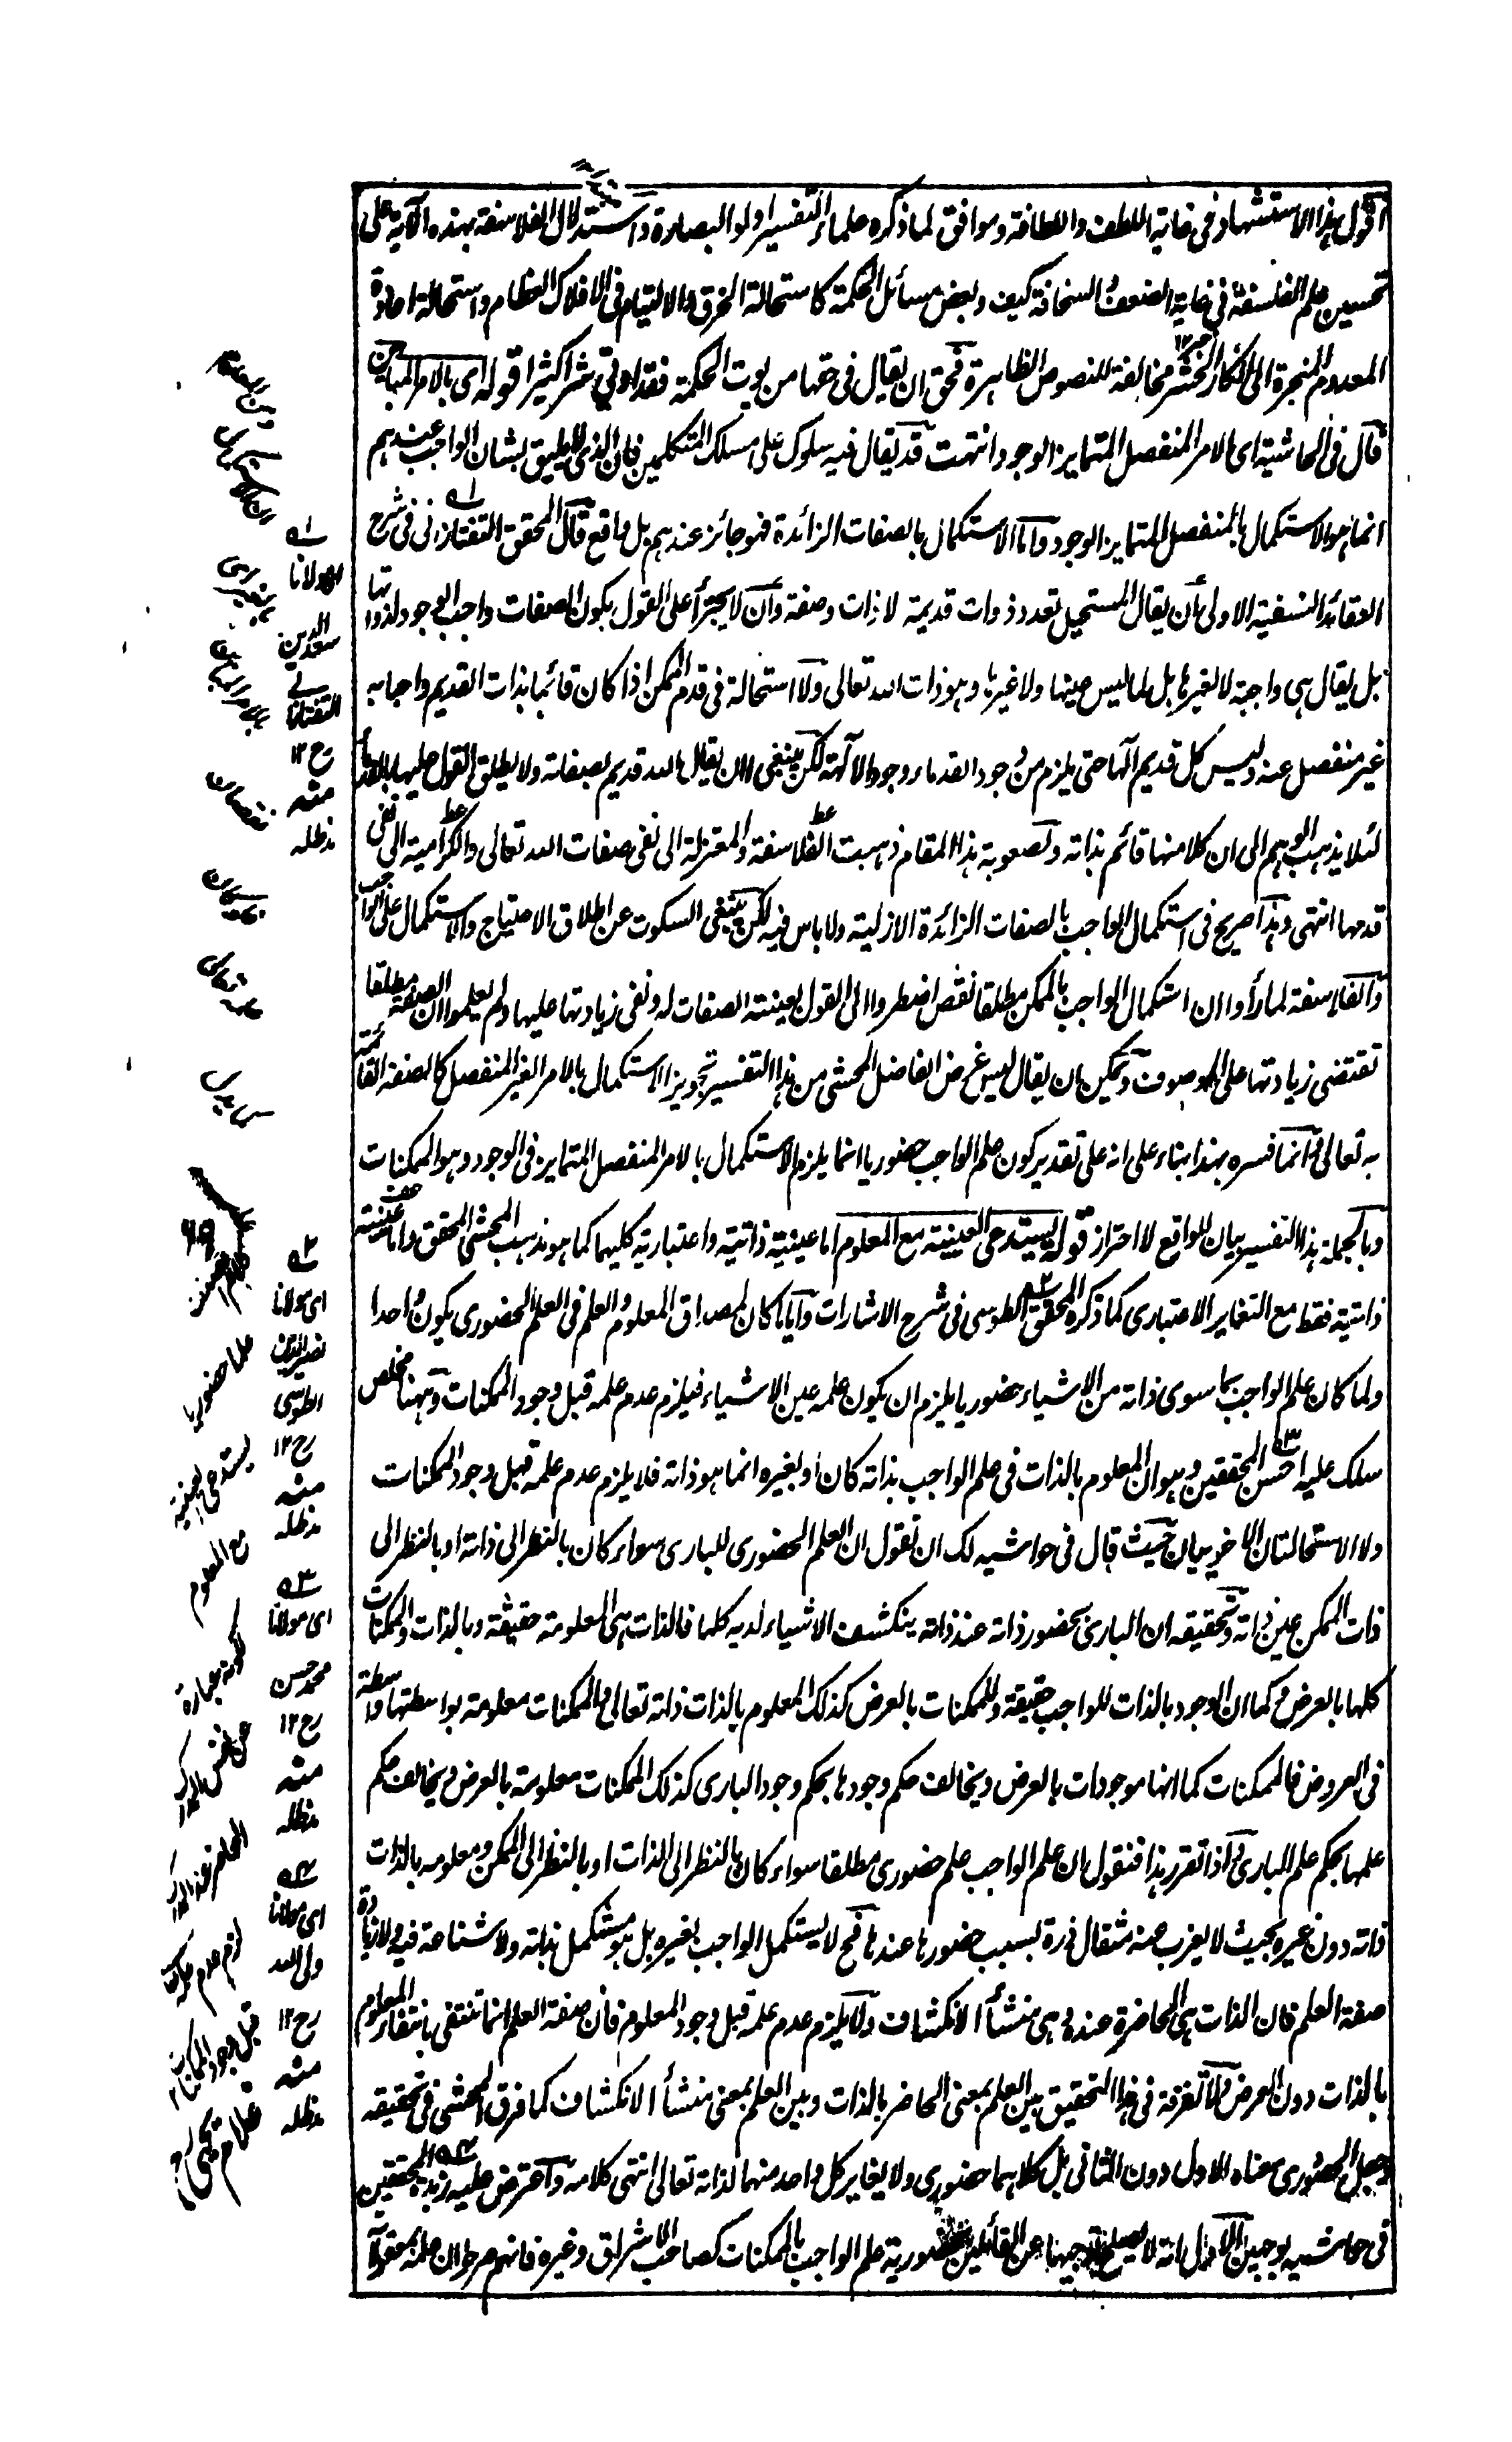 اقول هذا الاستشهاد فى غاية اللطف واللطافة وموافق لما ذكره علماء التفسير اولو البصارة واستدلال الفلاسفة بهذه الآية على
تحسين علم الفلسفة فى غاية الضعف والسخافة كيف وبعض مسائل الحكمة كاستحالة الخرق والالتيام فى الافلاك العظام واستحالة اعادة
المعدوم المنجرة الى انكار الحشر مخالفة للنصوص الظاهرة فحق ان يقال فى حقها من يوت الحكمة فقد اوتي شرا كثيرا قوله اى بالامر المباين
قال فى الحاشية اى الامر المنفصل المتمايز الوجود انتهت قد يقال فيه سلوك على مسلك المتكلمين فان الذى لا يليق بشان الواجب عندهم
انما هو الاستكمال بالمنفصل المتمايز الوجود واما الاستكمال بالصفات الزائدة فهو جائز عندهم بل واقع قال المحقق التفتازانى فى شرح
العقائد النسفية الاولى أن يقال المستحيل تعدد ذوات قديمة لا ذات وصفة وان لا يجترأ على القول بكون الصفات واجب الوجود لذواتها
بل يقال هى واجبة لا لغيرها بل لما ليس عينها ولا غيرها وهو ذات الله تعالى ولا استحالة فى قدم الممكن اذا كان قائما بذات القديم واجبا به
غير منفصل عنه وليس كل قديم آلها حتى يلزم من وجود القدماء وجود الآلهة لكن ينبغى ان يقال الله قديم بصفاته ولا يطلق القول عليها بالقدماء
لئلا يذهب الوهم الى ان كلا منها قائم بذاته ولصعوبة هذا المقام ذهبت الفلاسفة والمعتزلة الى نفى صفات الله تعالى والكرامية الى نفى
قدمها انتهى وهذا صريح فى استكمال الواجب بالصفات الزائدة الازلية ولا باس فيه لكن ينبغى السكوت عن اطلاق الاحتياج والاستكمال على الواجب
والفلاسفة لما رأوا ان استكمال الواجب بالممكن مطلقا نقص اضطروا الى القول بعينية الصفات له ونفى زيادتها عليها ولم يعلموا ان الصفة مطلقا
تقتضى زيادتها على الموصوف ويمكن ان يقال ليس غرض الفاضل المحشى من هذا التفسير تجويز الاستكمال بالامر الغير المنفصل كالصفة القائمة
به تعالى وانما فسره بهذا بناء على انه على تقدير كون علم الواجب حضوريا انما يلزم الاستكمال بالامر المنفصل المتمايز فى الوجود وهو الممكنات
وبالجملة هذا التفسير بيان للواقع لا احتراز قوله يستدعى العينية مع المعلوم اما عينية ذاتية واعتبارية كليهما كما هو مذهب المحشى المحقق واما عينية
ذاتية فقط مع التغاير الاعتبارى كما ذكره المحقق الطوسى فى شرح الاشارات وايا ما كان لمصداق المعلوم والعلم فى العلم الحضورى يكون واحدا
ولما كان علم الواجب بما سوى ذاته من الاشياء حضوريا يلزم ان يكون علمه عين الاشياء فيلزم عدم علمه قبل وجود الممكنات وههنا مخلص
سلك عليه احسن المحققين وهو ان المعلوم بالذات فى علم الواجب بذاته كان أو بغيره انما هو ذاته فلا يلزم عدم علمه قبل وجود الممكنات
ولا الاستحالتان الاخريان حيث قال فى حواشيه لك ان تقول ان العلم الحضورى للبارى سواء كان بالنظر الى ذاته او بالنظر الى
ذات الممكن عين ذاته وتحقيقه ان البارى بحضور ذاته عند ذاته ينكشف الاشياء لديه كلها فالذات هى المعلومة حقيقة وبالذات والممكنات
كلها بالعرض وكما ان الوجود بالذات للواجب حقيقة وللممكنات بالعرض كذلك المعلوم بالذات ذاته تعالى والممكنات معلومة بواسطتها واسطة
فى العروض فالممكنات كما انها موجودات بالعرض ويخالف حكم وجودها بحكم وجود البارى كذلك الممكنات معلومة بالعرض ويخالف حكم
علمها بحكم علم البارى واذا تقرر هذا فنقول ان علم الواجب علم حضورى مطلقا سواء كان بالنظر الى الذات او بالنظر الى الممكن ومعلومه بالذات
ذاته دون غيره بحيث لا يعزب عنه مثقال ذرة بسبب حضورها عندها فح لا يستكمل الواجب بغيره بل هو مستكمل بذاته ولا شناعة فيه ولا زيادة
صفة العلم فان الذات هى الحاضرة عنده وهى منشأ الانكشاف ولا يلزم عدم علمه قبل وجود المعلوم فان صفة العلم انما تنتفى بانتفاء المعلوم
بالذات دون العرض ولا تفرقة فى هذا التحقيق بين العلم بمعنى الحاضر بالذات وبين العلم بمعنى منشأ الانكشاف كما فرق المحشى فى تحقيقه
وجعل الحضورى معناه الاول دون الثانى بل كلاهما حضورى ولا يغاير كل واحد منهما لذاته تعالى انتهى كلامه واعترض عليه زبدة المحققين
فى حاشيه بوجهين الاول انه لا يصلح توجيها عن القائلين بحضورية علم الواجب بالممكنات كصاحب الاشراق وغيره فانهم صرحوا ان علمه بمعقولا
ا
مولانا
سعد الدين
التفتازانى
رح ١٢
منه
مدظله
٢
اى مولانا
نصير الدين
الطوسى
رح ١٢
منه
مدظله
٣
اى مولانا
محمد حسن
رح ١٢
منه
مدظله
٤
اى مولانا
ولى الله
رح ١٢
منه
مدظله
علما حضوريا
يستدعى العينية
مع المعلوم
لزم عدم علمه
قبل وجود الممكنات
غلام يحيى رح